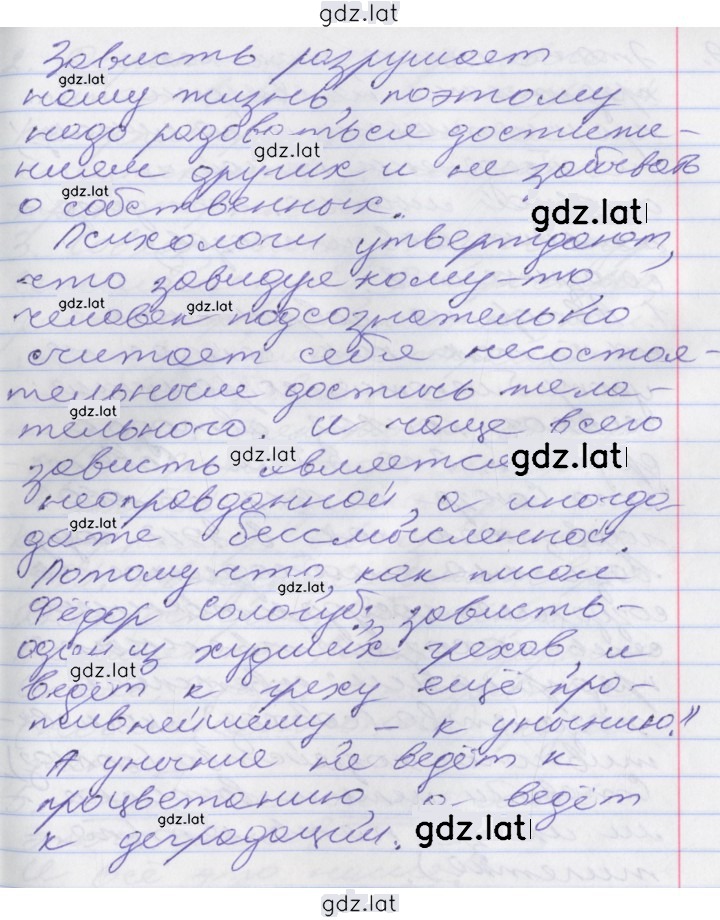 gdz.lat
Зависть разрушает
gdz.lat
нашу жизнь, поэтому
надо радоваться достиже-
gdz.lat
ниям других и не забывать
gdz.lat
о собственных.
gdz.lat
Психологи утверждают,
что завидуя кому-то,
gdz.lat gdz.lat
человек подсознательно
считает себя несостоя-
тельным достичь жела-
gdz.lat
тельного. И чаще всего
gdz.lat gdz.lat
зависть является
неоправданной, а иногда
gdz.lat
даже бессмысленной.
Потому что, как писал
gdz.lat
Фёдор Сологуб, зависть-
один из худших грехов, и
gdz.lat
ведёт к греху ещё про-
тивнейшему, – к унынию."
А уныние не ведёт к
процветанию, а ведёт
gdz.lat gdz.lat
к деградации.
gdz.lat